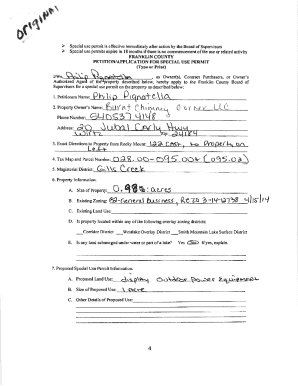 ORIGINAL
➢ Special use permit is effective immediately after action by the Board of Supervisors
➢ Special use permits expire in 18 months if there is no commencement of the use or related activity
FRANKLIN COUNTY
PETITION/APPLICATION FOR SPECIAL USE PERMIT
(Type or Print)
I/We, Philip Pignatella, as Owner(s), Contract Purchasers, or Owner's
Authorized Agent of the property described below, hereby apply to the Franklin County Board of
Supervisors for a special use permit on the property as described below:
1. Petitioners Name: Philip Pignatella
2. Property Owner's Name: Burnt Chimney Corner LLC
Phone Number: 5405374148
Address: 20 Jubal Early Hwy
Wirtz 24184
3. Exact Directions to Property from Rocky Mount: 122 East, to Property on
Left
4. Tax Map and Parcel Number: 028.00-095.00 (095.02)
5. Magisterial District: Gills Creek
6. Property Information:
A. Size of Property: 0.988 acres
B. Existing Zoning: B2-General Business, 4/15/14
C. Existing Land Use:
D. Is property located within any of the following overlay zoning districts:
Corridor District Westlake Overlay District Smith Mountain Lake Surface District
E. Is any land submerged under water or part of a lake? Yes No If yes, explain.
7. Proposed Special Use Permit Information:
A. Proposed Land Use: display Outdoor Power Equipment
B. Size of Proposed Use: 1 acre
C. Other Details of Proposed Use:
4